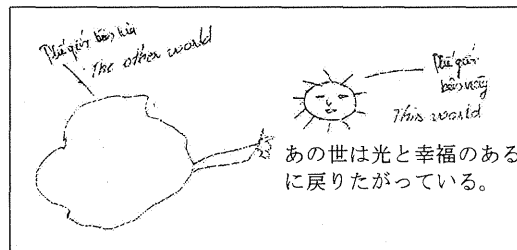 Thế giới bên kia
The other world
Thế giới
bên này
This world
あの世は光と幸福のある
に戻りたがっている。